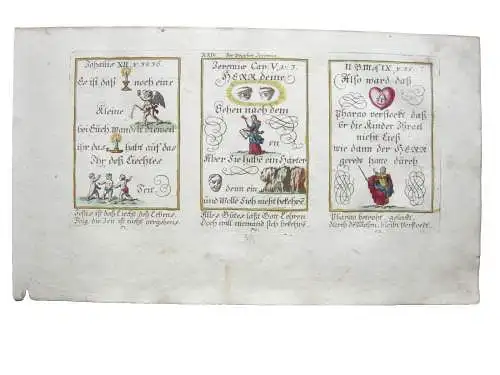 Johañis XII. v. 35. 36.
Es ist daß noch eine
Kleine
bei Euch. Wandelt dieweil
ihr das habt auf das
Ihr deß Liechtes
Seit
Jesus ist deß Liecht deß Lebens.
XXIX. Der Prophet Jeremia
Jeremiæ Cap. V. v. 3.
HERR deine
Sehen nach dem
en
Aber Sie habē ein Härter
denn ein
und Wolle Sich nicht bekehrē
Alles Gutes laßt Gott Lehren
Doch will niemand sich bekehrē
II B. Mos. IX. v.
Also ward daß
Pharao verstockt daß
Er die Kinder Israel
nicht Ließ
wie dann der HERR
geredt hatte durch
Pharao
bleibt Verstockt.